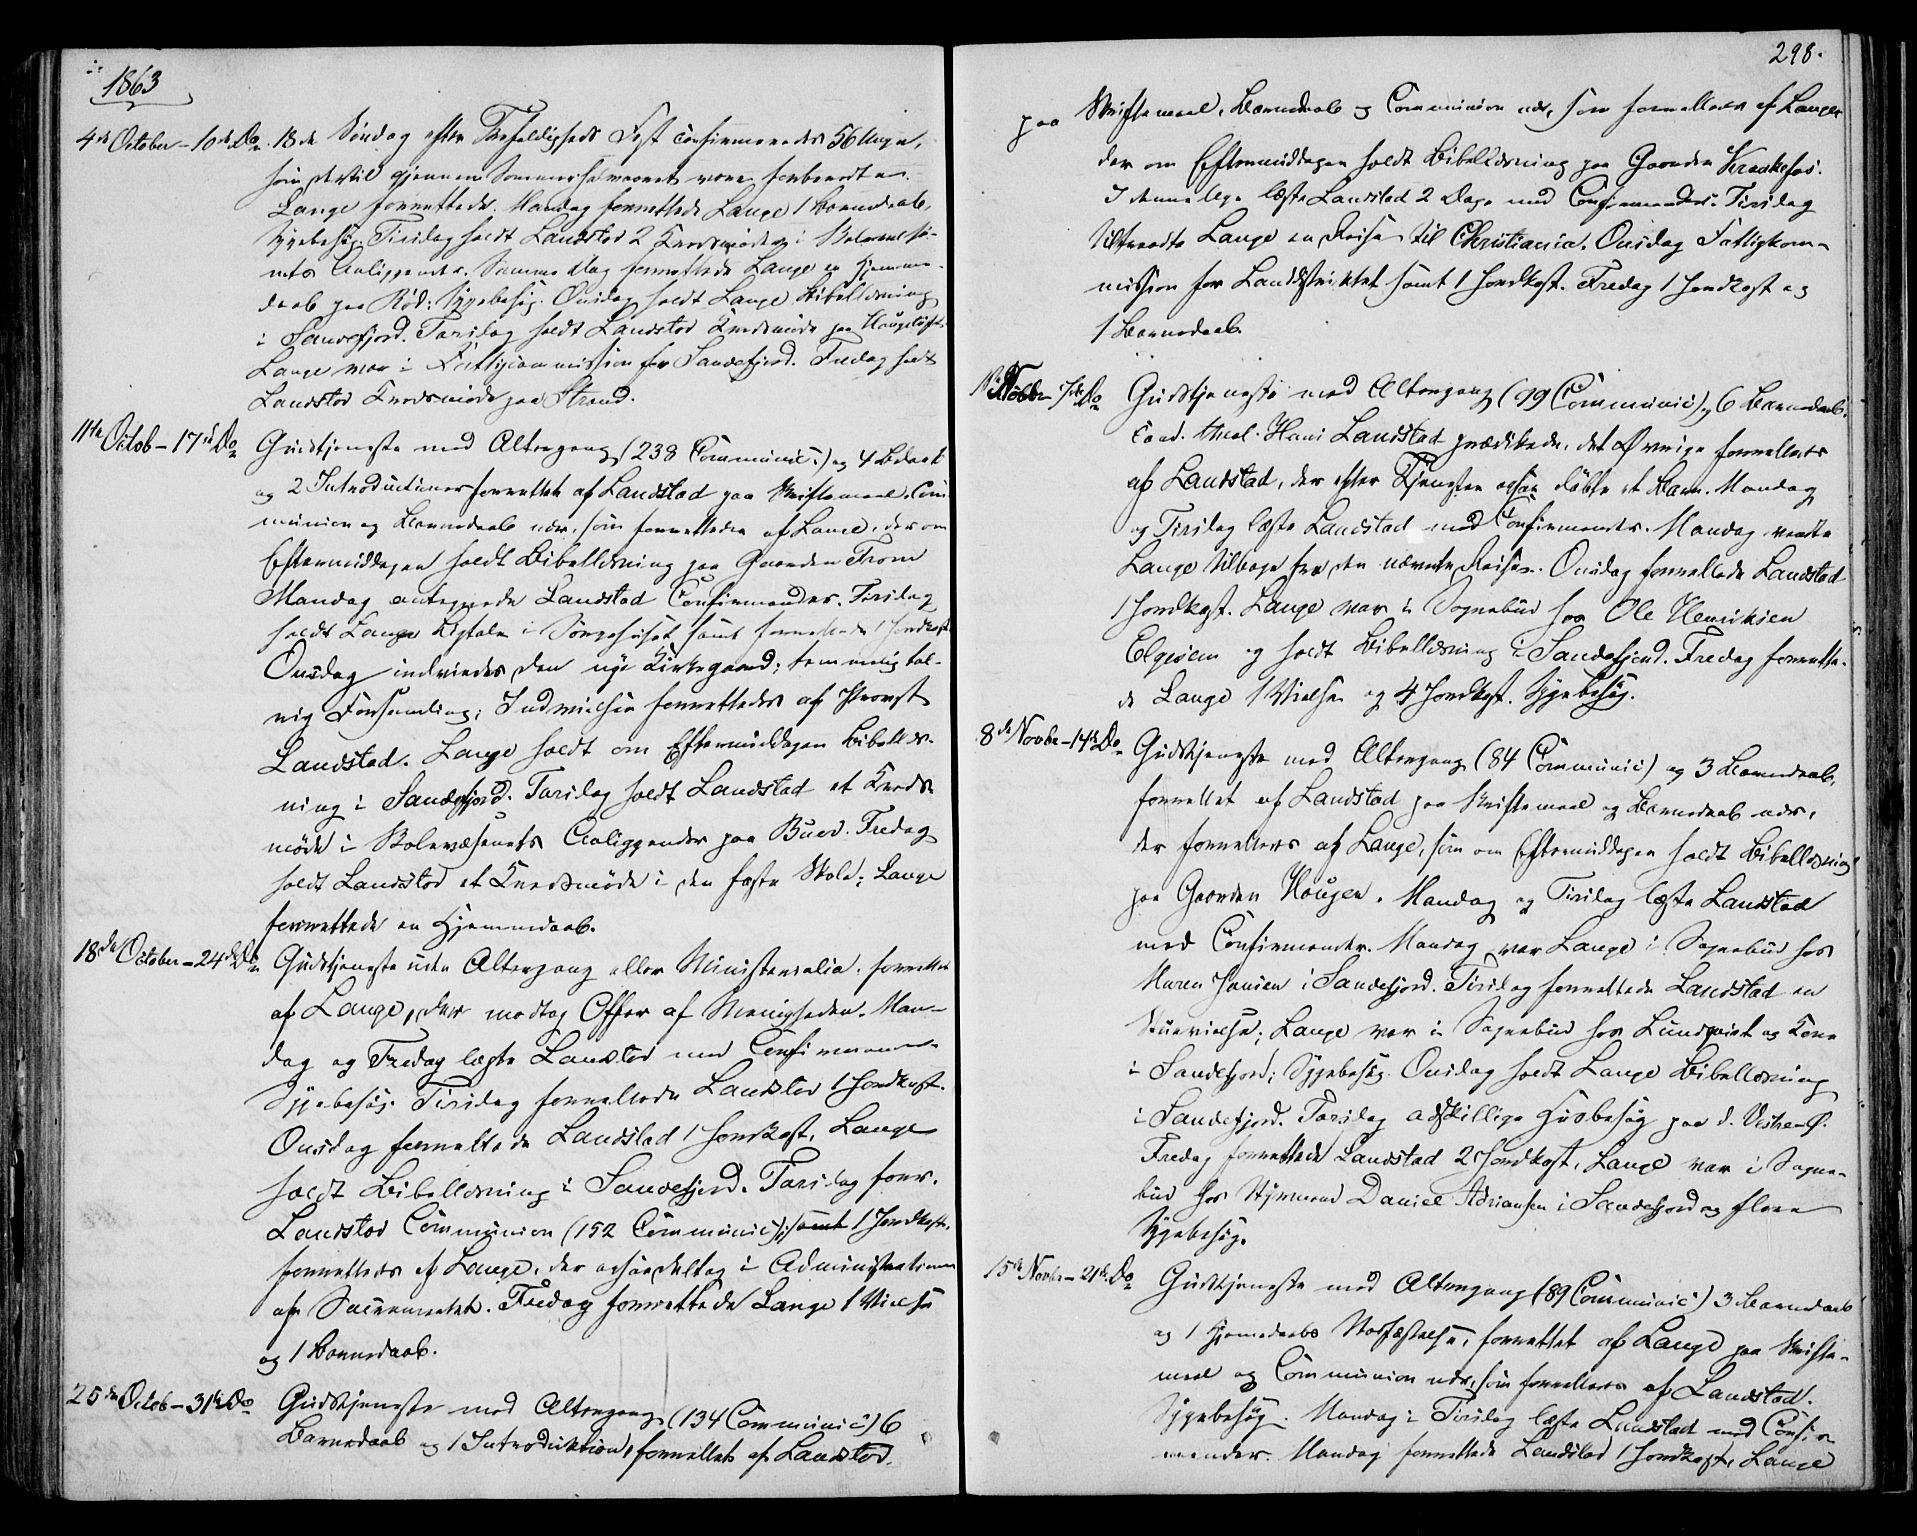 1863
4de October – 10de Do. 18de Søndag efter Trefoldigheds Fest confirmeredes 56 Unge,
som dertil gjennem Sommerhalvaaret vare forberedte.
Lange forrettede. Mandag forrettede Lange 1 Barnedaab,
Sygebesøg. Tirsdag holdt Landstad 2 Kredsmøder i Skolevæse-
nets Anliggender. Samme Dag forrettede Lange en Hjemme-
daab paa Rød; Sygebesøg. Onsdag holdt Lange Bibellæsning
i Sandefjord. Torsdag holdt Landstad Kredsmøde paa
Lange var i Fattigcommission for Sandefjord. Fredag holdt
Landstad Kredsmøde paa Strand.
11te Octob – 17de Do Gudstjeneste med Altergang (238 Communic:) og 4 Bdaab
og 2 Introductioner forrettet af Landstad paa Skriftemaal, Com-
munion og Barnedaab nær, som forrettedes af Lange, der om
Eftermiddagen holdt Bibellæsning paa Gaarden From
Mandag antegnede Landstad Confirmander. Tirsdag
holdt Lange Ligtale i Sørgehuset samt forrettede 1 Jordkast
Onsdag indviedes den nye Kirkegaard; temmelig tal-
rig Forsamling; Indvielsen forrettedes af Provst
Landstad. Lange holdt om Eftermiddagen Bibellæs-
ning i Sandefjord. Torsdag holdt Landstad et Kreds-
møde i Skolevæsenets Anliggender paa Buer. Fredag
holdt Landstad et Kredsmøde i den faste Skole; Lange
forrettede en Hjemmedaab.
18de October – 24de Do Gudstjeneste uden Altergang eller Ministerialia, forrettet
af Lange, der modtog Offer af Menigheden. Man-
dag og Fredag læste Landstad med Confirmander
Sygebesøg. Tirsdag forrettede Landstad 1 Jordkast.
Onsdag forrettede Landstad 1 Jordkast, Lange
holdt Bibellæsning i Sandefjord. Torsdag forr.
Landstad Communion (152 Communic); samt 1 Jordkast,
forrettedes af Lange, der ogsaa deltog i Administrationen
af Sacramentet. Fredag forrettede Lange 1 Vielse
og 1 Barnedaab.
25de Octob – 31te Do Gudstjeneste med Altergang (134 Communic:) 6
Barnedaab og 1 Introduktion, forrettet af Landstad.
298.
paa Skriftemaal, Barnedaab og Communion nær, som forrettedes af Lange
der om Eftermiddagen holdt Bibellæsning paa Gaarden
I denne Uge læste Landstad 2 Dage med Confirmander. Tirsdag
tiltraadte Lange en Reise til Christiania. Onsdag Fattigkom-
mission for Landdistriktet samt 1 Jordkast. Fredag 1 Jordkast og
1 Barnedaab.
1ste Novbr – 7de Do Gudstjeneste med Altergang (99 Communic), 6 Barnedaab.
Cand. theol. Hans Landstad prædikede, det Øvrige forrettedes
af Landstad, der efter Tjenesten ogsaa døbte et Barn. Mandag
og Tirsdag læste Landstad med Confirmander. Mandag vendte
Lange tilbage fra den nævnte Reise. Onsdag forrettede Landstad
1 Jordkast. Lange var i Sognebud hos Ole Henriksen
Elgesem og holdt Bibellæsning i Sandefjord. Fredag forrette-
de Lange 1 Vielse og 4 Jordkast. Sygebesøg.
8de Novbr – 14de Do Gudstjeneste med Altergang (84 Communic:) og 3 Barnedaab,
forrettet af Landstad paa Skriftemaal og Barnedaab nær,
der forrettedes af Lange, som om Eftermiddagen holdt Bibellæsning
paa Gaarden Haugen. Mandag og Tirsdag læste Landstad
med Confirmander. Mandag var Lange i Sognebud hos
Maren Jansen i Sandefjord. Tirsdag forrettede Landstad en
Stuevielse; Lange var i Sognebud hos Lundqvist og Kone
i Sandefjord; Sygebesøg. Onsdag holdt Lange Bibellæsning
i Sandefjord. Torsdag adskillige Husbesøg paa d. Vestre-Ø.
Fredag forrettede Landstad 2 Jordkast, Lange var i Sogne-
bud hos Styrmand Daniel Adriansen i Sandefjord og flere
Sygebesøg.
15de Novbr – 21de Do Gudstjeneste med Altergang (89 Communic:) 3 Barnedaab
og 1 Hjemedaabs Stadfæstelse, forrettet af Lange paa Skrifte-
maal og Communion nær, som forrettedes af Landstad.
Sygebesøg. Mandag & Tirsdag læste Landstad med Confir-
mander. Mandag forrettede Landstad 1 Jordkast, Lange